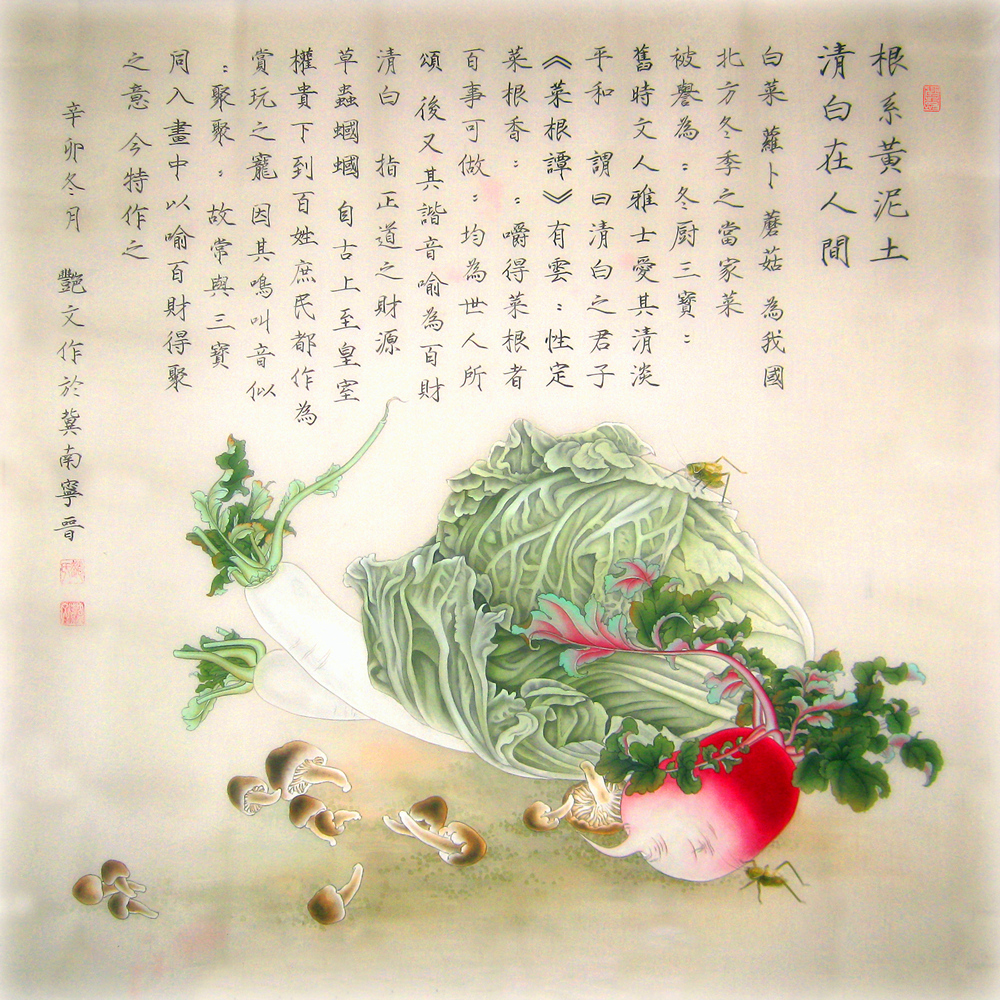 根系黃泥土
清白在人間
白菜 蘿卜 蘑菇 為我國
北方冬季之當家菜
被譽為：冬厨三寶：
舊時文人雅士愛其清淡
平和 謂曰清白之君子
《菜根譚》有雲：性定
菜根香：：嚼得菜根者
百事可做：均為世人所
頌 後又其諧音喻為百財
清白 指正道之財源
草蟲蟈蟈 自古上至皇室
權貴下到百姓庶民都作為
賞玩之寵 因其鳴叫音似
：聚聚：故常與三寶
同入畫中以喻百財得聚
之意 今特作之
辛卯冬月 艷文作於冀南寧晉